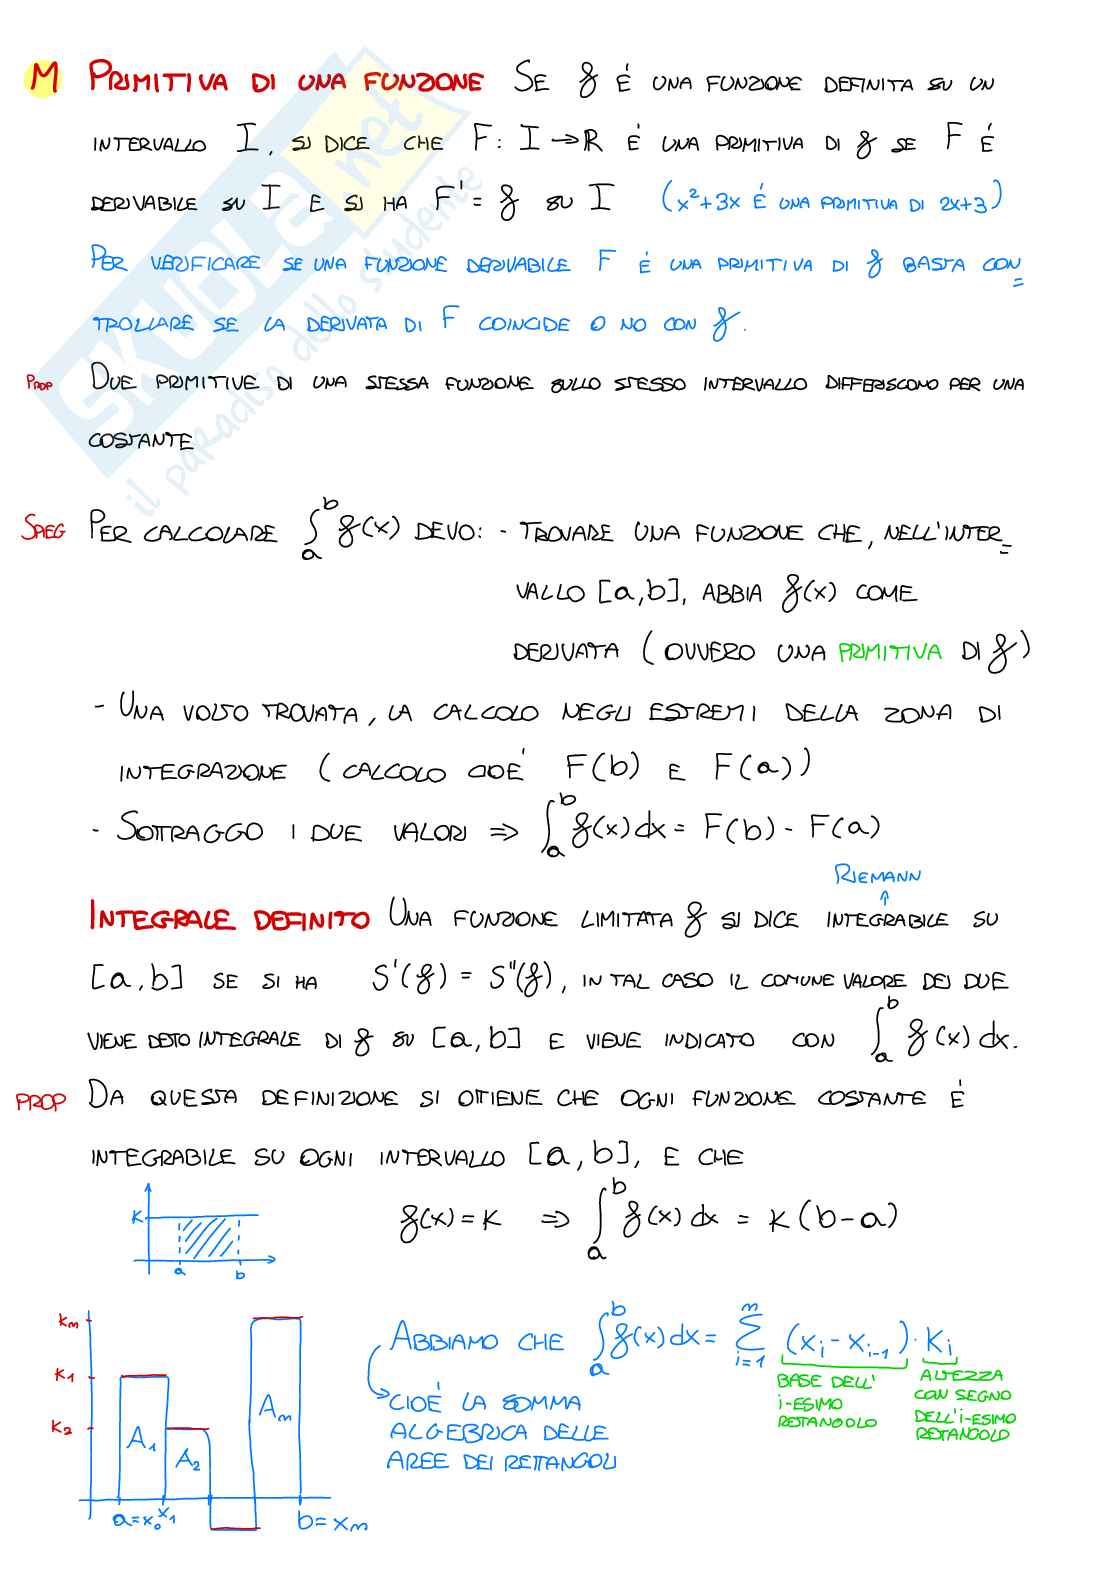 M PRIMITIVA DI UNA FUNZIONE SE f É UNA FUNZIONE DEFINITA SU UN
INTERVALLO I, SI DICE CHE F: I → R É UNA PRIMITIVA DI f SE F É
DERIVABILE SU I E SI HA F' = f SU I (x²+3x É UNA PRIMITIVA DI 2x+3)
PER VERIFICARE SE UNA FUNZIONE DERIVABILE F É UNA PRIMITIVA DI f BASTA CON=
TROLLARE SE LA DERIVATA DI F COINCIDE O NO CON f.
PROP DUE PRIMITIVE DI UNA STESSA FUNZIONE SULLO STESSO INTERVALLO DIFFERISCONO PER UNA
COSTANTE
SKUOLA.net
il paradiso dello studente
SPIEG PER CALCOLARE ∫_a^b f(x) DEVO: - TROVARE UNA FUNZIONE CHE, NELL'INTER=
VALLO [a,b], ABBIA f(x) COME
DERIVATA (OVVERO UNA PRIMITIVA DI f)
- UNA VOLTO TROVATA, LA CALCOLO NEGLI ESTREMI DELLA ZONA DI
INTEGRAZIONE (CALCOLO CIOÉ F(b) E F(a))
- SOTTRAGGO I DUE VALORI ⇒ ∫_a^b f(x)dx = F(b) - F(a)
RIEMANN
↑
INTEGRALE DEFINITO UNA FUNZIONE LIMITATA f SI DICE INTEGRABILE SU
[a,b] SE SI HA S'(f) = S''(f), IN TAL CASO IL COMUNE VALORE DEI DUE
VIENE DETTO INTEGRALE DI f SU [a,b] E VIENE INDICATO CON ∫_a^b f(x)dx.
PROP DA QUESTA DEFINIZIONE SI OTTIENE CHE OGNI FUNZIONE COSTANTE É
INTEGRABILE SU OGNI INTERVALLO [a,b], E CHE
K a b
f(x) = K ⇒ ∫_a^b f(x)dx = K(b-a)
Km
K1
K2
A1
A2
Am
a=x₀ x1
b=xm
ABBIAMO CHE ∫_a^b f(x)dx = Σ_{i=1}^m (x_i - x_{i-1}) · K_i
CIOÉ LA SOMMA
ALGEBRICA DELLE
AREE DEI RETTANGOLI
BASE DELL'
i-ESIMO
RETTANGOLO
ALTEZZA
CON SEGNO
DELL'i-ESIMO
RETTANGOLO